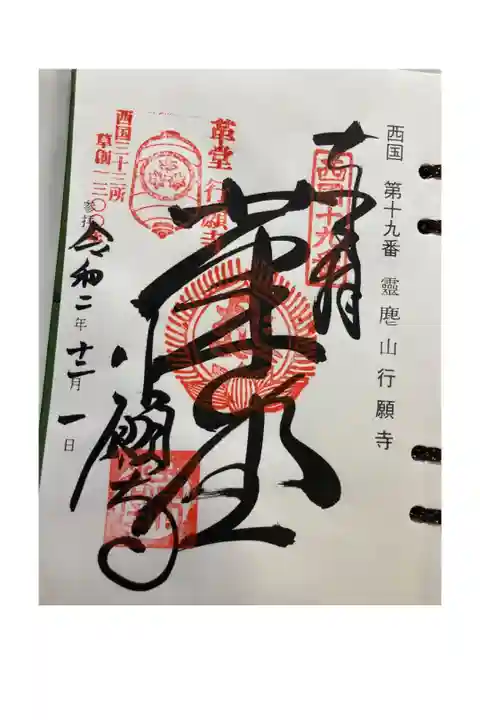 西国 第十九番 靈麀山行願寺
奉拝
西国十九番
革堂
革堂 行願寺
西国三十三所
草創一三〇〇年
参拝
令和二年十二月一日
行願寺